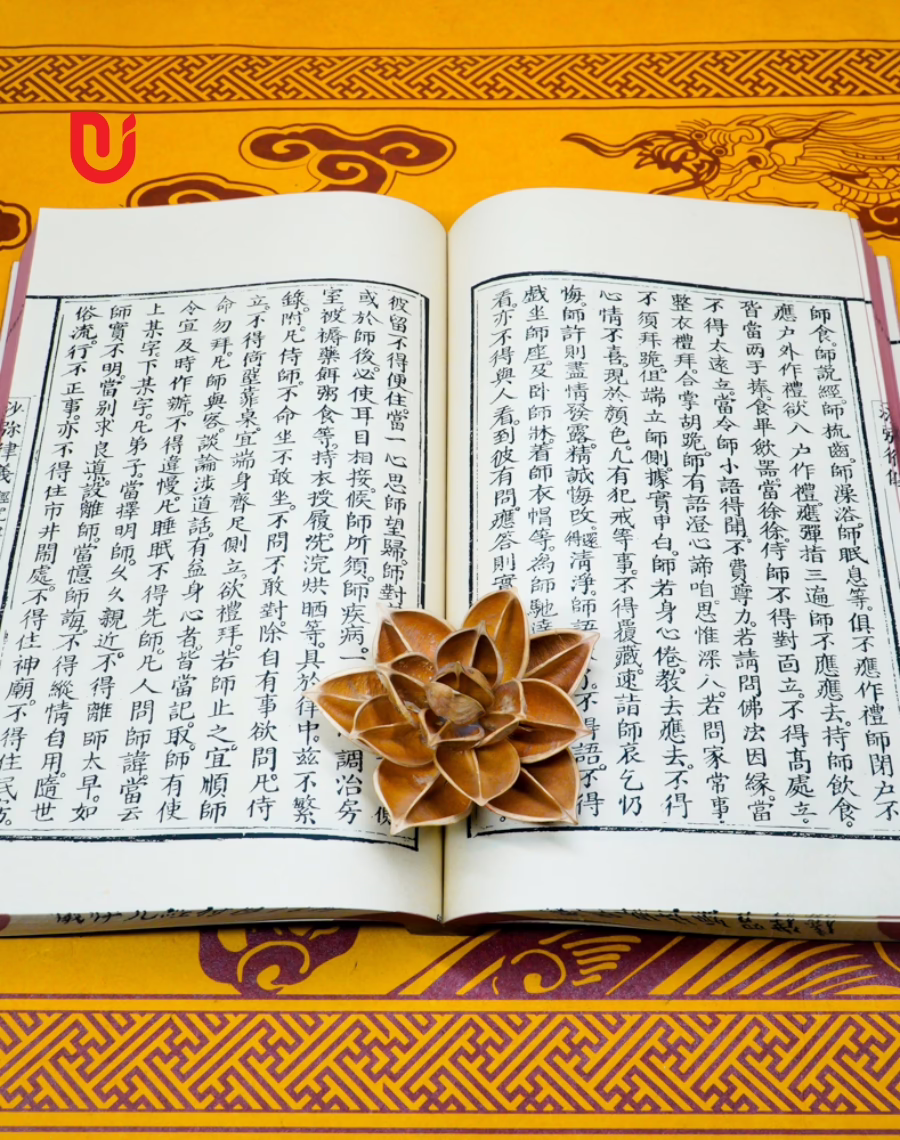 師食。師說經。師梳齒。師澡浴。師眠息等。俱不應作禮師閉戶不
應戶外作禮欲入戶作禮應彈指三遍師不應應去。持師飲食。
皆當兩手捧。食畢斂器。當徐徐。侍師不得對面立。不得高處立。
不得太遠立。當令師小語得聞。不費尊力。若請問佛法因緣。當
整衣禮拜。合掌胡跪。師有語。澄心諦聽。思惟深入。若問家常事。
不須拜跪。但端立師側。據實申白。師若身心倦。教去應去。不得
心情不喜。現於顏色。凡有犯戒等事。不得覆藏。速詣師哀乞仍
悔。師許則盡情發露。精誠悔改。還得清淨。師語 不得語。不得
戲坐師座。及臥師牀。着師衣帽等。為師馳達
看。亦不得與人看。到彼有問。應答則實
彼留不得便住。當一心思師望歸。師對
或於師後。必使耳目相接。候師所須。師疾病。一 調治房
室被褥藥餌粥食等。持衣授履。洗浣烘晒等。具於律中。兹不繁
錄。附。凡侍師。不命坐不敢坐。不問不敢對。除自有事欲問。凡侍
立。不得倚壁靠桌。宜端身齊足側立。欲禮拜。若師止之。宜順師
命勿拜。凡師與客談論涉道話。有益身心者。皆當記取。師有使
令。宜及時作辦。不得違慢。凡睡眠不得先師。凡人問師諱。當云
上某字。下某字。凡弟子。當擇明師。久久親近。不得離師太早。如
師實不明。當別求良導。設離師。當憶師誨。不得縱情自用。隨世
俗流。行不正事。亦不得住市井鬧處。不得住神廟。不得住民房。
沙彌律儀